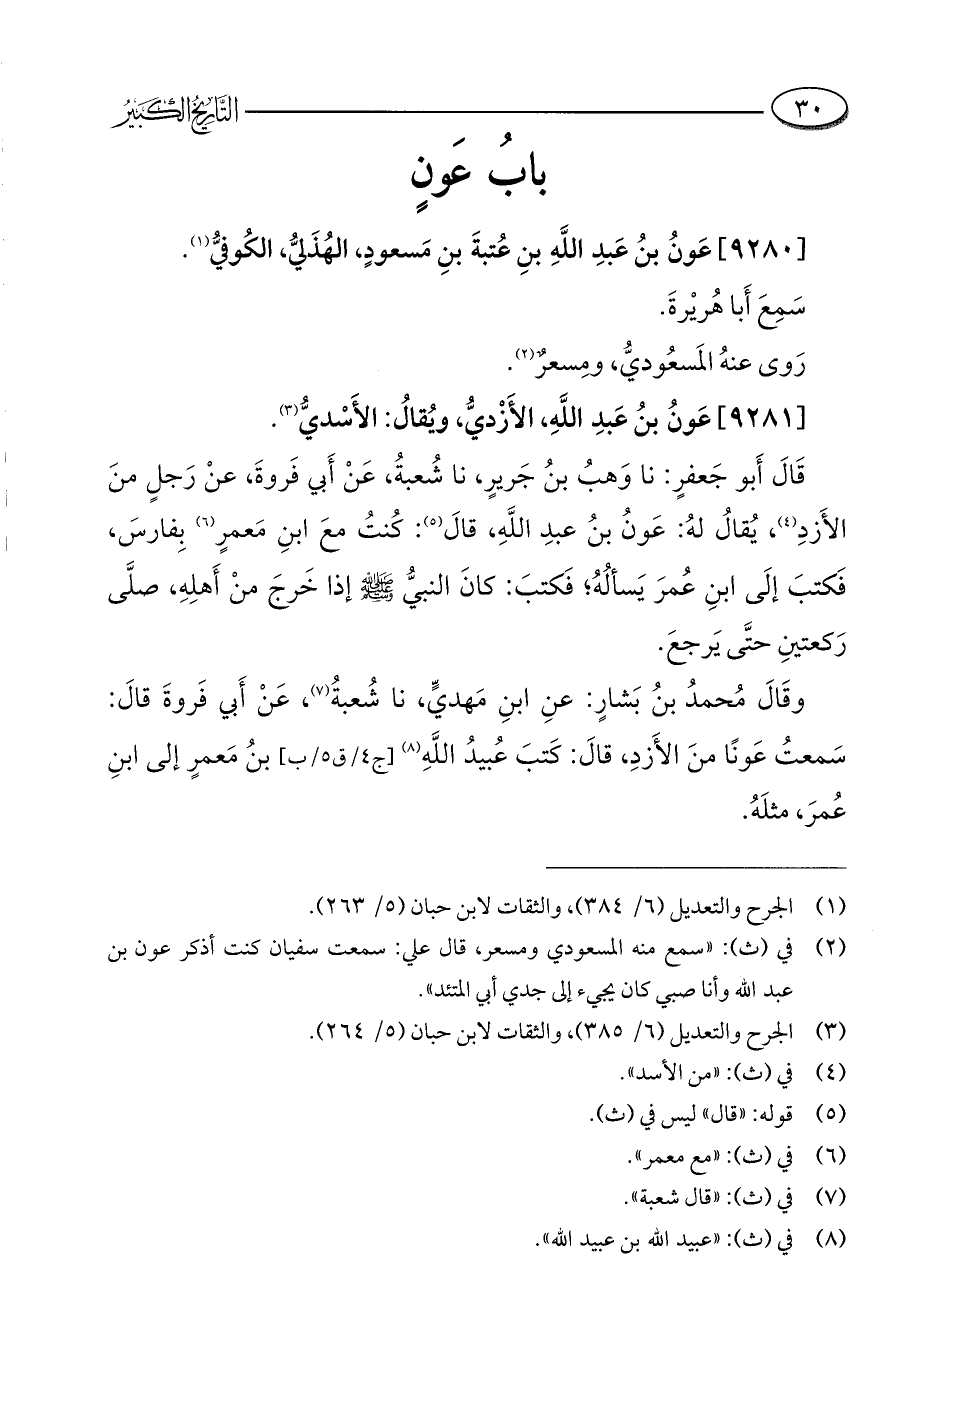 ٣٠ التَّاريخُ الكَبيرُ
بابُ عَونٍ
[٩٢٨٠] عَونُ بنُ عَبدِ اللَّهِ بنِ عُتبةَ بنِ مَسعودٍ، الهُذَليُّ، الكُوفيُّ(١).
سَمِعَ أَبا هُريْرةَ.
رَوى عنهُ المَسعُوديُّ، ومِسعرٌ(٢).
[٩٢٨١] عَونُ بنُ عَبدِ اللَّهِ، الأَزْديُّ، ويُقالُ: الأَسْديُّ(٣).
قَالَ أَبو جَعفرٍ: نا وَهبُ بنُ جَريرٍ، نا شُعبةُ، عَنْ أَبي فَروةَ، عنْ رَجلٍ منَ
الأَزدِ(٤)، يُقالُ لهُ: عَونُ بنُ عبدِ اللَّهِ، قالَ(٥): كُنتُ معَ ابنِ مَعمرٍ(٦) بِفارسَ،
فَكتبَ إلَى ابنِ عُمرَ يَسألُهُ؛ فَكتبَ: كانَ النبيُّ ﷺ إذا خَرجَ منْ أَهلِهِ، صلَّى
رَكعتينِ حتَّى يَرجعَ.
وقَالَ مُحمدُ بنُ بَشارٍ: عنِ ابنِ مَهديٍّ، نا شُعبةُ(٧)، عَنْ أَبي فَروةَ قالَ:
سَمعتُ عَونًا منَ الأَزدِ، قالَ: كَتبَ عُبيدُ اللَّهِ(٨) [ج٤/ ق٥/ ب] بنُ مَعمرٍ إلى ابنِ
عُمرَ، مثلَهُ.
(١) الجرح والتعديل (٦/ ٣٨٤)، والثقات لابن حبان (٥/ ٢٦٣).
(٢) في (ث): «سمع منه المسعودي ومسعر، قال علي: سمعت سفيان كنت أذكر عون بن
عبد الله وأنا صبي كان يجيء إلى جدي أبي المتئد».
(٣) الجرح والتعديل (٦/ ٣٨٥)، والثقات لابن حبان (٥/ ٢٦٤).
(٤) في (ث): «من الأسد».
(٥) قوله: «قال» ليس في (ث).
(٦) في (ث): «مع معمر».
(٧) في (ث): «قال شعبة».
(٨) في (ث): «عبيد الله بن عبيد الله».